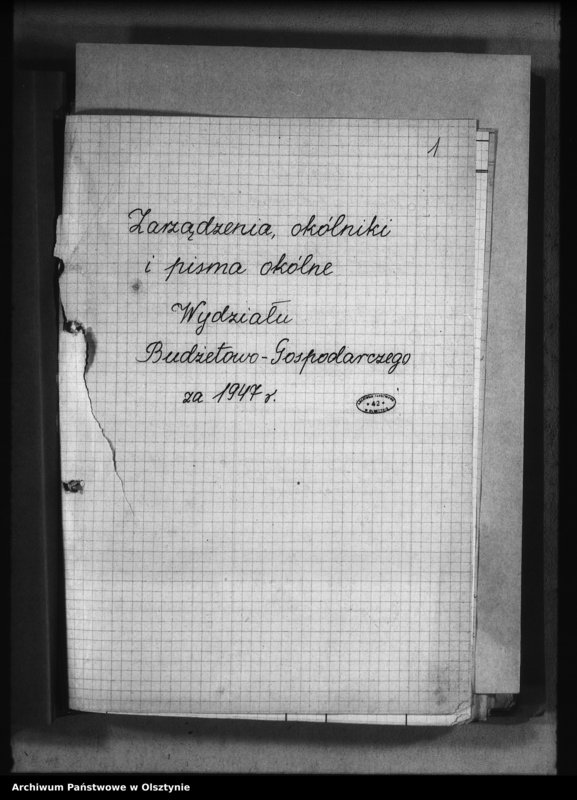 1
Zarządzenia, okólniki
i pisma okólne
Wydziału
Budżetowo-Gospodarczego
za 1947 r.
* 42 *
Archiwum Państwowe w Olsztynie